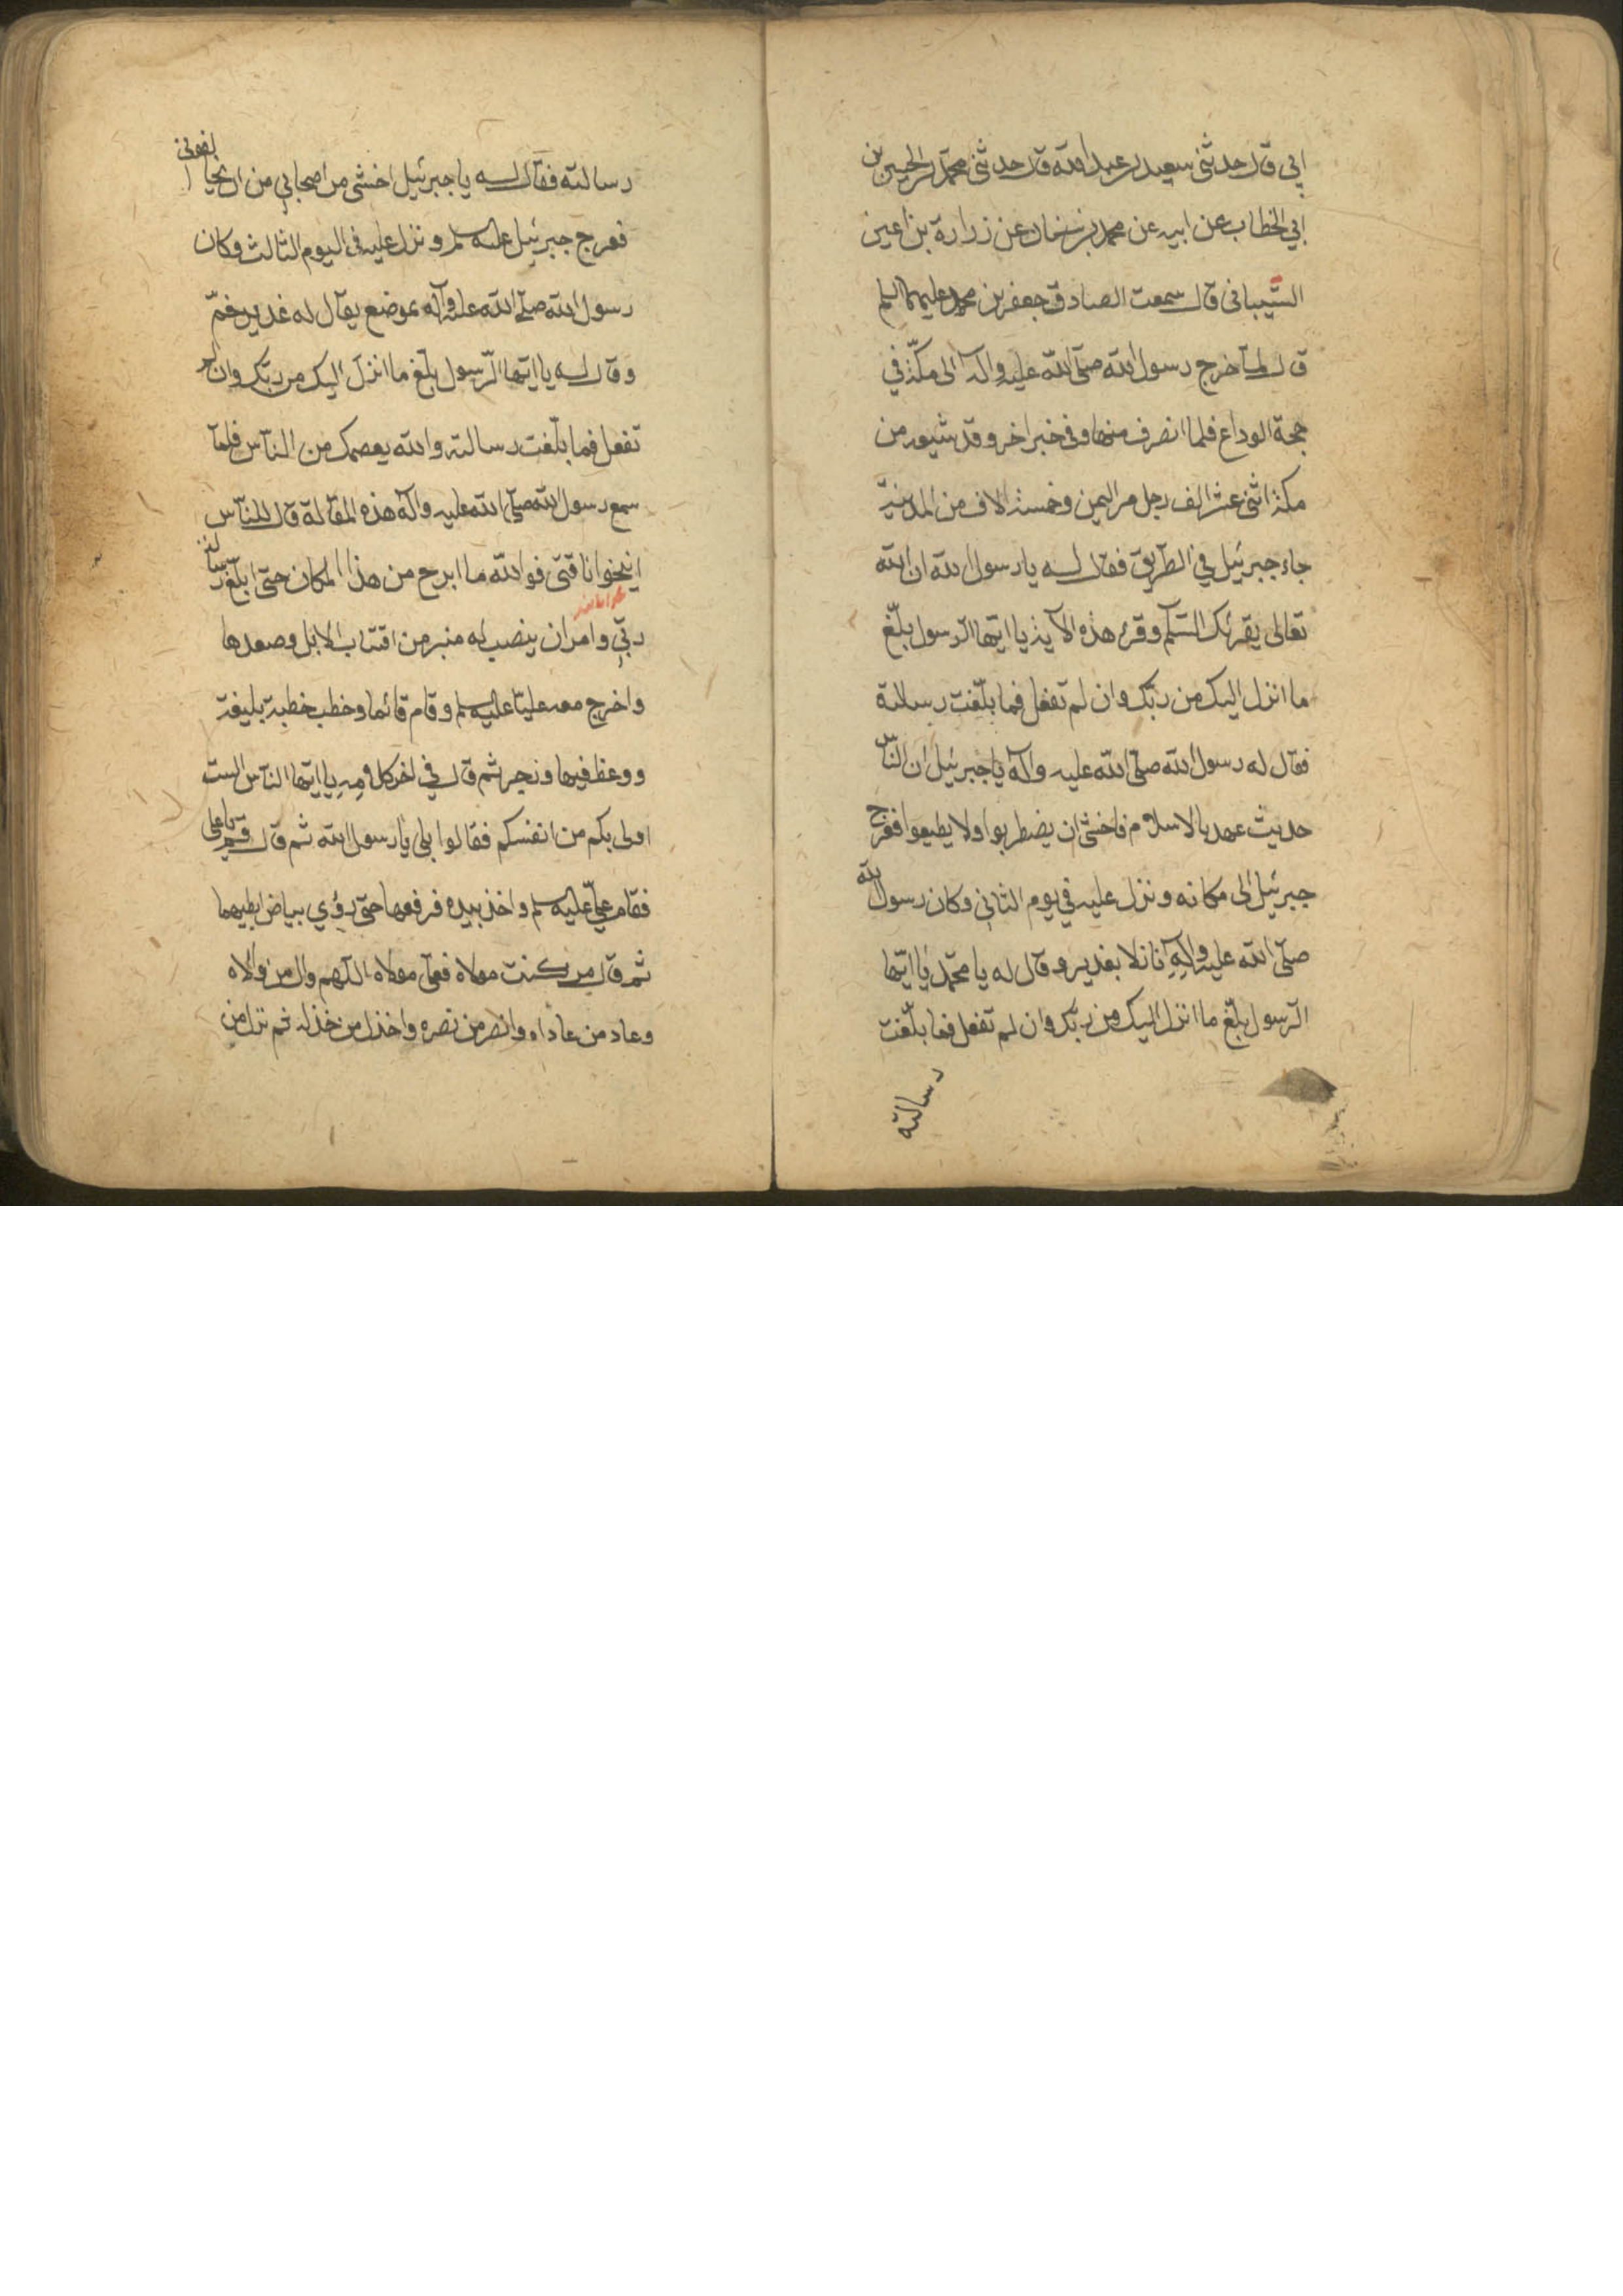 ابي قال حدثنى سعيد بن عبد الله قال حدثنى محمد بن الحسين بن
ابي الخطاب عن ابيه عن محمد بن سنان عن زرارة بن اعين
الشيبانى قال سمعت الصادق جعفر بن محمد عليهما السلم
قال لما خرج رسول الله صلى الله عليه وآله الى مكة في
حجة الوداع فلما انصرف منها وفى خبر اخر وقد شيعه من
مكة اثنى عشر الف رجل من اليمن وخمسة الاف من المدينة
جاء جبرئيل في الطريق فقال له يا رسول الله ان الله
تعالى يقرئك السلم وقرء هذه الآية يا ايها الرسول بلّغ
ما انزل اليك من ربّك وان لم تفعل فما بلّغت رسالته
فقال له رسول الله صلّى الله عليه وآله يا جبرئيل ان الناس
حديث عهد بالاسلام فاخشى ان يضطربوا ولا يطيعوا فعرج
جبرئيل الى مكانه ونزل عليه في يوم الثاني وكان رسول الله
صلّى الله عليه وآله نازلا بغدير وقال له يا محمّد يا ايّها
الرسول بلّغ ما انزل اليك من ربّك وان لم تفعل فما بلّغت
رسالته
رسالته فقال له يا جبرئيل اخشى من اصحابي من ان يخالفونى
فعرج جبرئيل عليه السلم ونزل عليه فى اليوم الثالث وكان
رسول الله صلى الله عليه وآله بموضع يقال له غدير خمّ
وقال له يا ايّها الرّسول بلّغ ما انزل اليك من ربّك وان لم
تفعل فما بلّغت رسالته والله يعصمك من النّاس فلمّا
سمع رسول الله صلّى الله عليه وآله هذه المقالة قال للنّاس
انيخوا ناقتى فوالله ما ابرح من هذا المكان حتّى ابلّغ رسالة
ربّي وامر ان ينصب له منبر من اقتاب الابل وصعدها
واخرج معه عليّا عليه السلم وقام قائما وخطب خطبة بليغة
ووعظ فيها وزجر ثم قال في اخر كلامه يا ايّها النّاس الست
اولى بكم من انفسكم فقالوا بلى يا رسول الله ثم قال قم يا على
فقام علىّ عليه السلم واخذ بيده فرفعها حتّى رؤي بياض ابطيهما
ثم قال من كنت مولاه فعلى مولاه اللّهم وال من والاه
وعاد من عاداه وانصر من نصره واخذل من خذله ثم نزل من